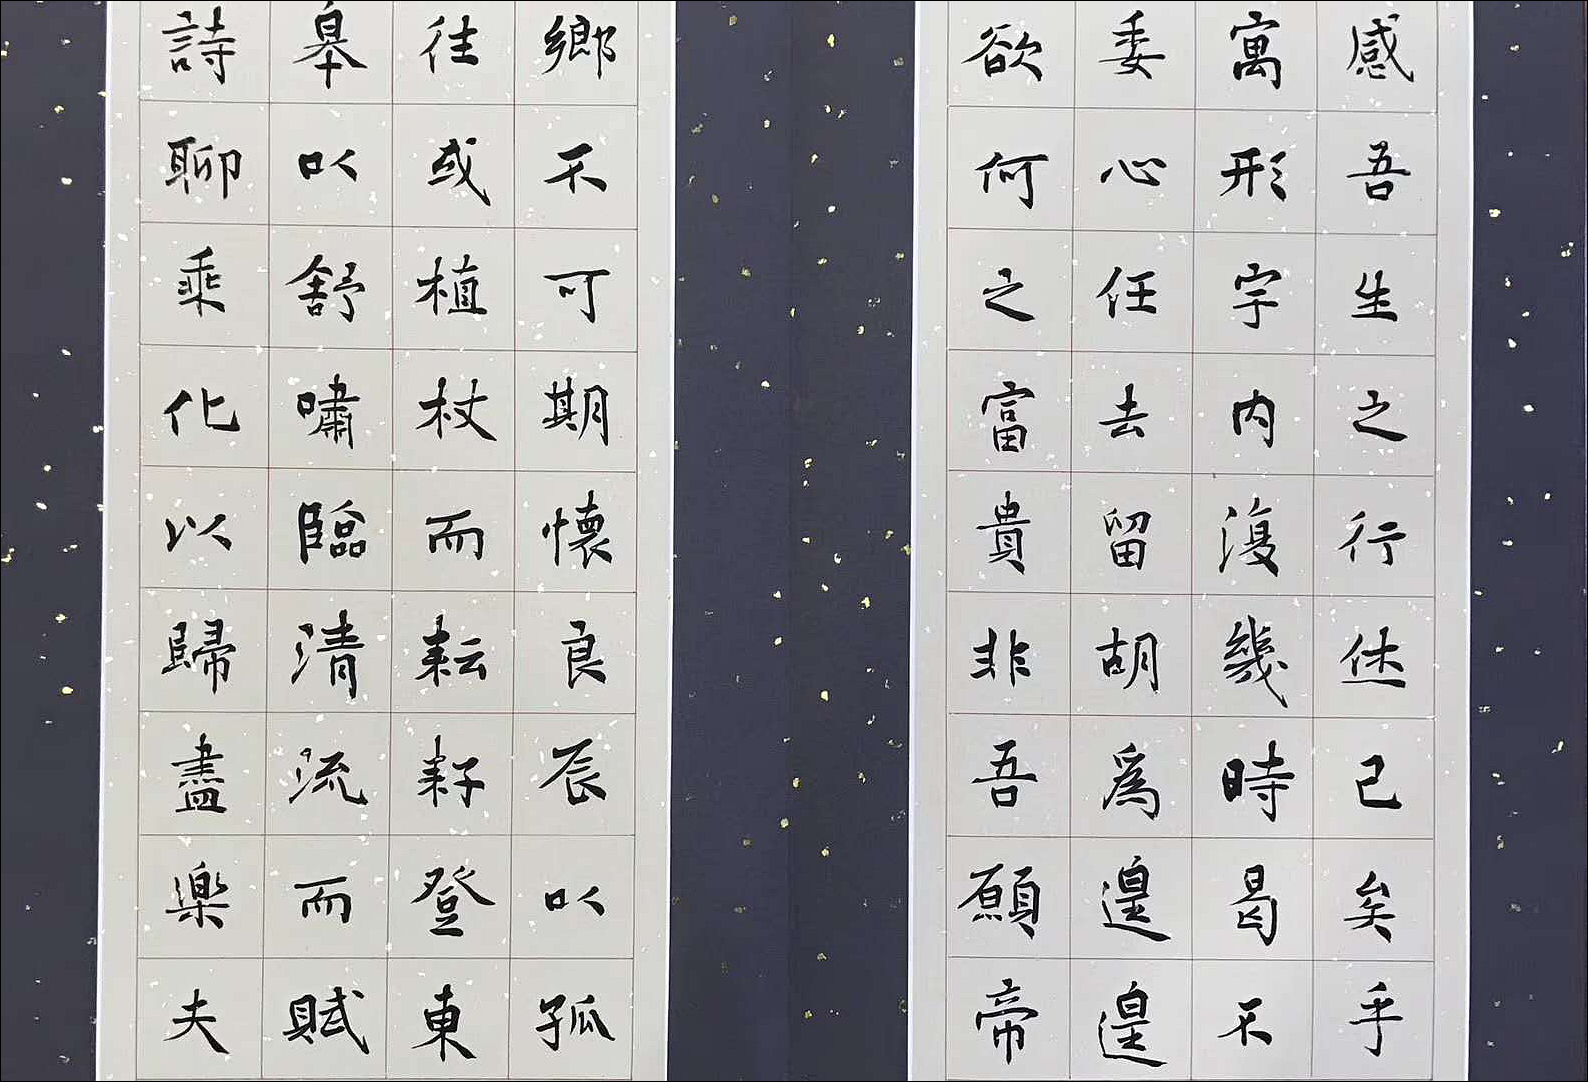 感吾生之行休已矣乎
寓形宇内復幾時曷不
委心任去留胡爲遑遑
欲何之富貴非吾願帝
鄉不可期懷良辰以孤
往或植杖而耘耔登東
皋以舒嘯臨清流而賦
詩聊乘化以歸盡樂夫